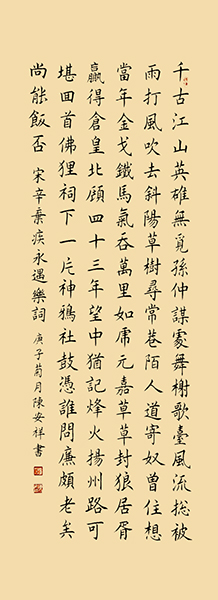 千古江山英雄無覓孫仲謀處舞榭歌臺風流総被
雨打風吹去斜陽草樹尋常巷陌人道寄奴曾住想
當年金戈鐵馬氣吞萬里如虎元嘉草草封狼居胥
贏得倉皇北顧四十三年望中猶記烽火揚州路可
堪回首佛狸祠下一片神鴉社鼓憑誰問廉頗老矣
尚能飯否 宋辛棄疾永遇樂詞 庚子菊月陳安祥書